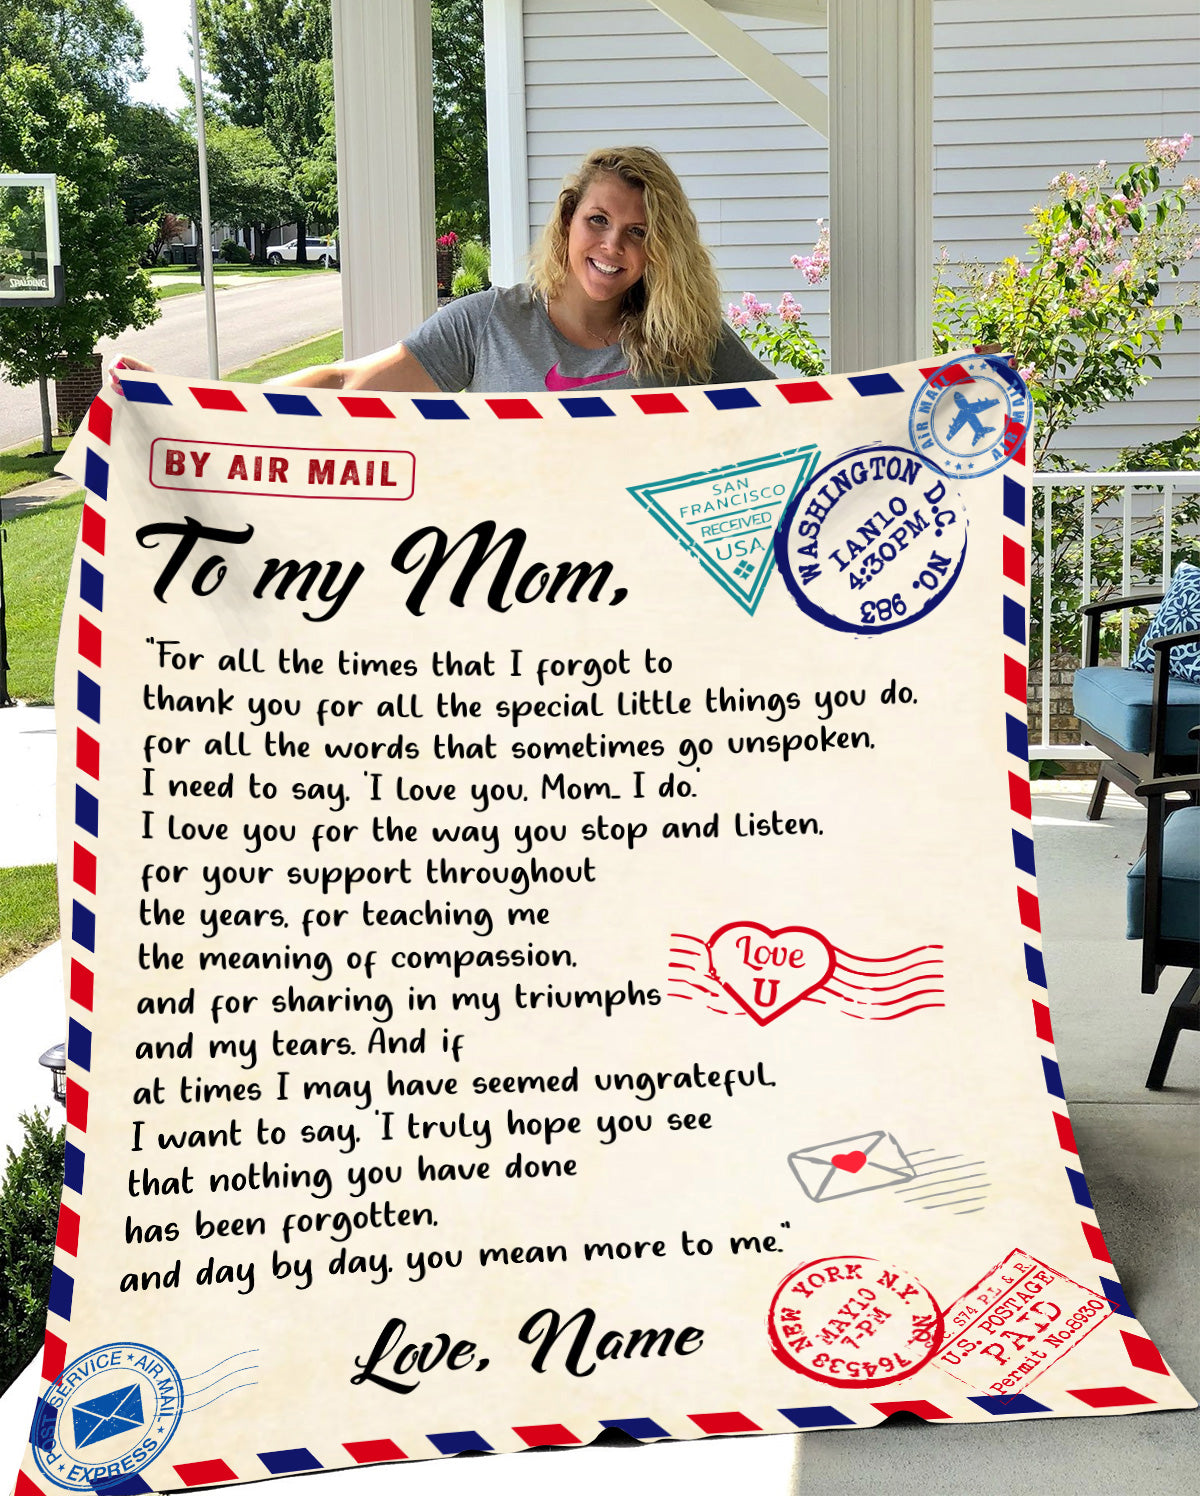 SPALDING
BY AIR MAIL
AIR MAIL
AIR MAIL
SAN
FRANCISCO
RECEIVED
USA
WASHINGTON D.C. NO. 983
IAN10
4:30PM
To my Mom,
"For all the times that I forgot to
thank you for all the special little things you do,
for all the words that sometimes go unspoken,
I need to say, 'I love you, Mom_ I do.'
I love you for the way you stop and listen,
for your support throughout
the years, for teaching me
the meaning of compassion,
and for sharing in my triumphs
and my tears. And if
at times I may have seemed ungrateful,
I want to say, 'I truly hope you see
that nothing you have done
has been forgotten,
and day by day, you mean more to me."
Love
U
Love, Name
NEW YORK N.Y. NO. 764538
MAY10
7-PM
C. S74 P.L & R.
U.S. POSTAGE
PAID
Permit No.8930
POST SERVICE * AIRMAIL * EXPRESS *